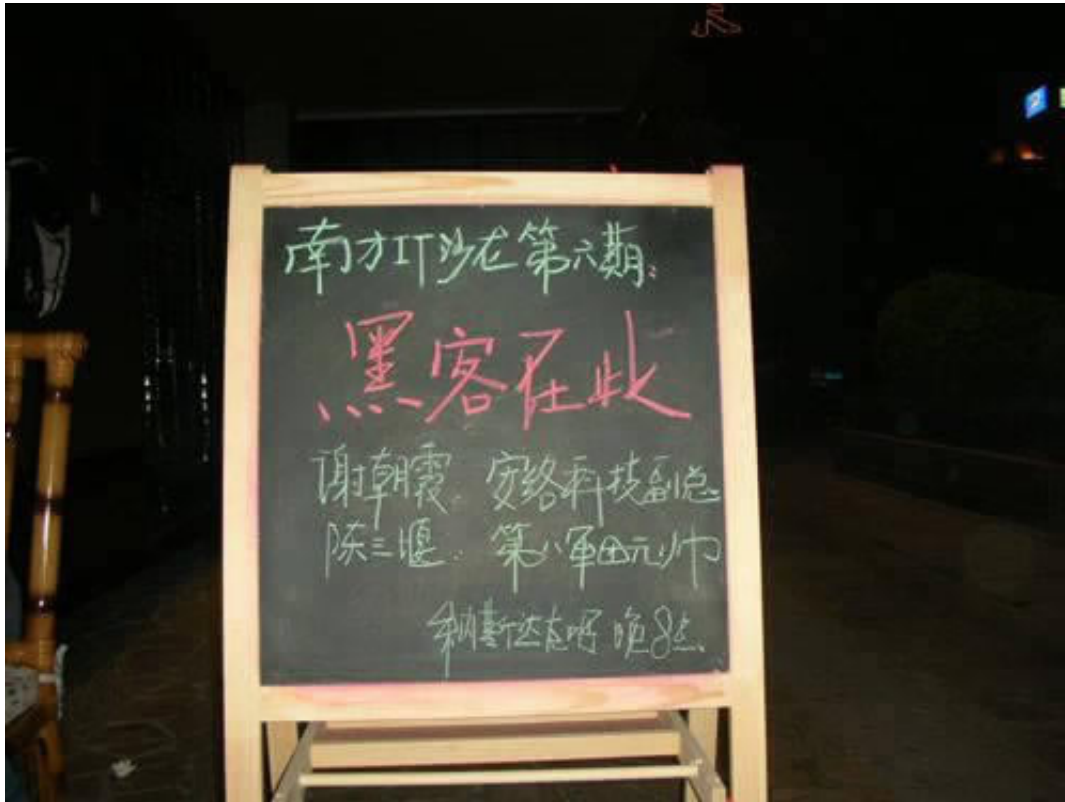 南方IT沙龙第六期:
黑客在此
谢朝霞. 安络科技副总
陈三堰. 第八军团元帅
纳斯达克吧 晚8点
2